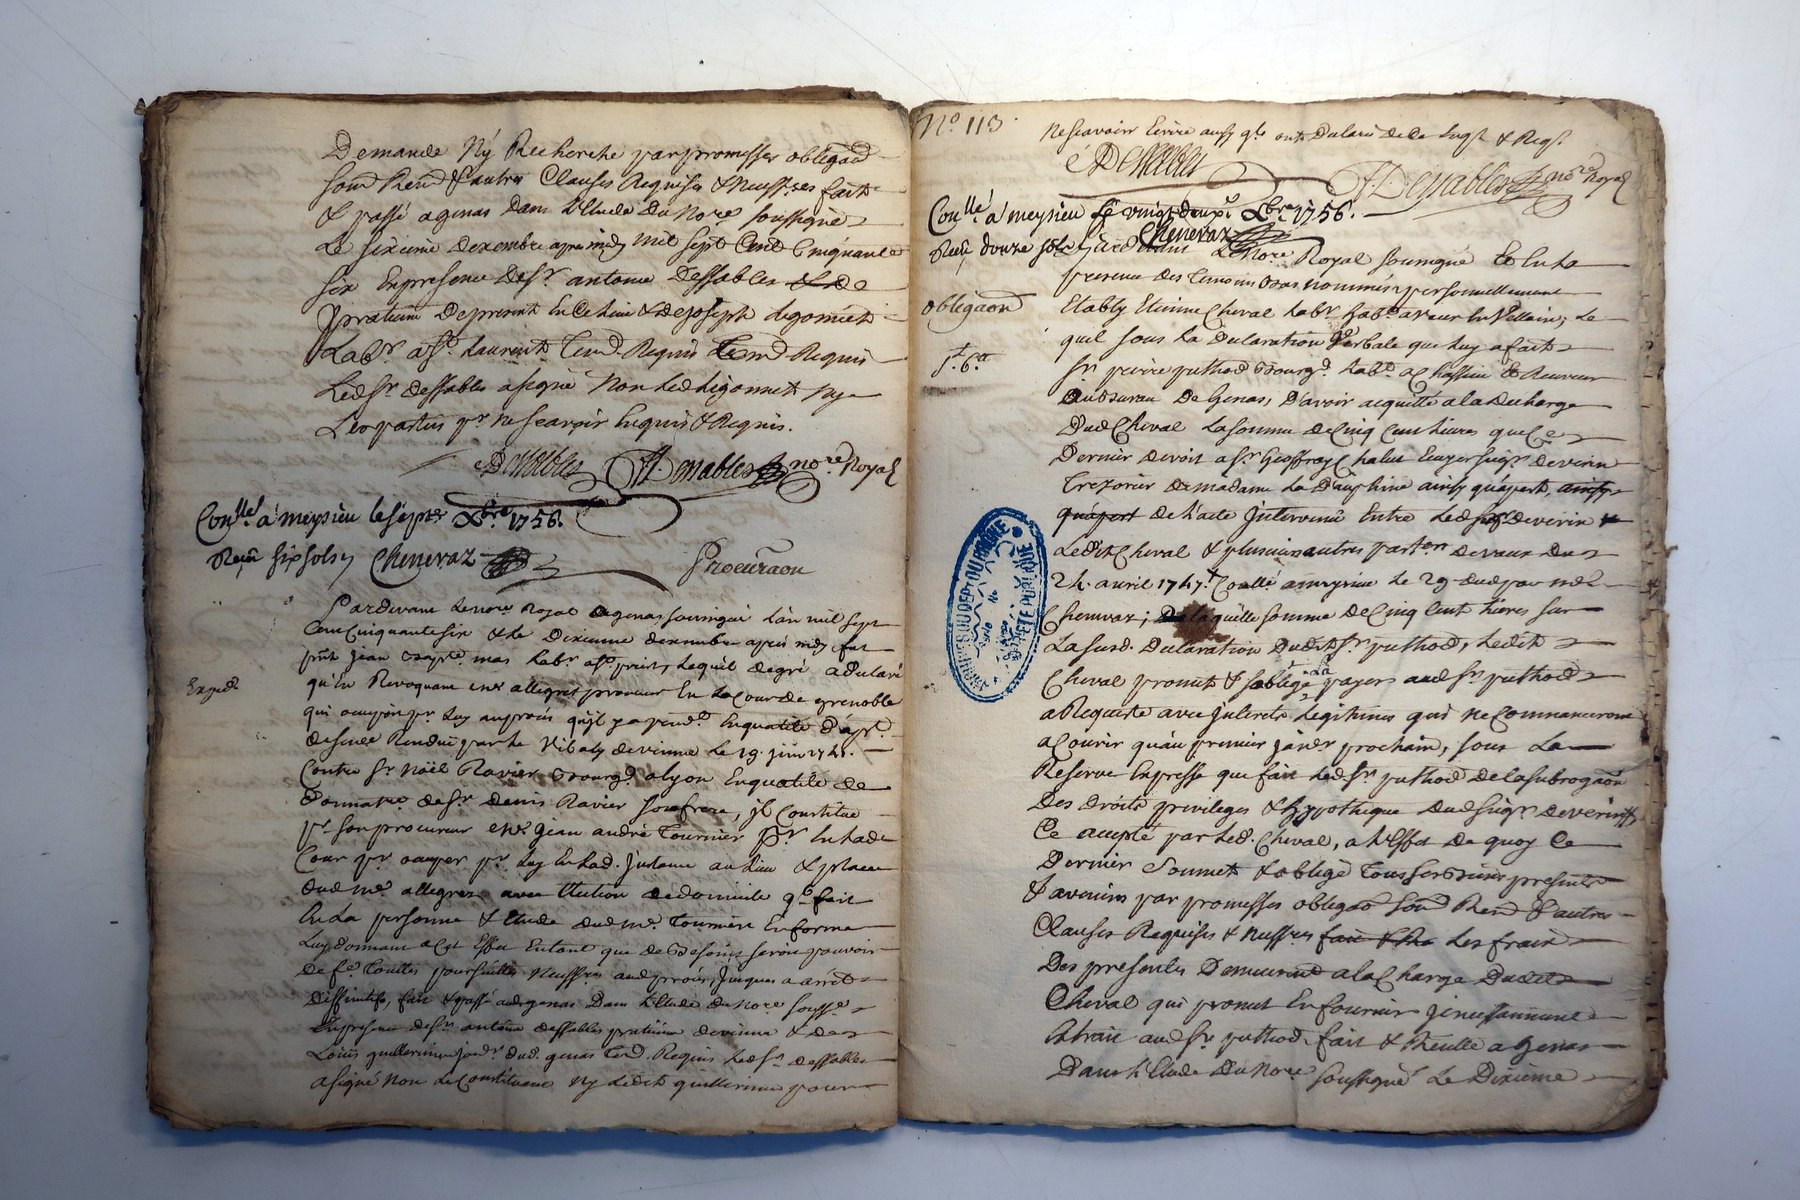 Demande Ny Recherche par promesses obligaõn
soud Renõn & autres Clauses Requises & neuss.res fait
& passé a genas dans L'Etude du No.re soussigné
Le sixieme decembre apres midy mil sept Cent Cinquante
six En presence de S.r antoine Dessables
praticien de present En Ce Lieu & de joseph ligonnet
Lab.r a S.t Laurent Tem.d Requis
Led S.r dessables a signé Non Led ligonnet Ny
Les parties p.r ne scavoir Enquis & Requis.
Dessables Dessables no.re Royal
Con.llé a meysieu le sept X.bre 1756.
Reçu six sols Chenevaz
Procuraõn
Pardevant Le no.re Royal de genas soussigné L'an mil sept
Cent Cinquante six & Le Dixieme decembre apres midy fut
p.nt Jean mas Lab.r Lequel de gré a declaré
Exped.
qu'En Revoquant m.e allegret procureur En La Cour de grenoble
qui occupoit p.r Luy au procés qu'il y a pend.t En qualité d'
de sentence Rendüe par le Vibaly de vienne Le 19. juin
Contre S.r Noël Ravier Bourg.s a lyon En qualité de
donnat.re de S.r denis Ravier son frere, jl Constitue
p.r son procureur m.e jean andré Tournier p.r En lad.
Cour p.r occuper p.r Luy En lad. jnstance au Lieu & place
dud m.e allegret avec Election de domicile q.l fait
En La personne & Etude dud m.e Tournier En forme
Luy donnant a Cet Effet Entant que de Besoin seroit pouvoir
de f.e Touttes poursuittes Neuss.res aud procés, jusques a arrêt
Diffinitif, fait & passé aud genas dans L'Etude du No.re souss.é
En presence de S.r antoine dessables praticien de vienne & de
Loüis guillermin dud. genas Tem.d Requis Led S.r dessables
a signé Non Le Constituant Ny Ledit guillermin pour
N.o 113
Ne scavoir Ecrire ainsy q.ls ont declaré de Ce Enq.s & Req.s
Dessables Dessables no.re Royal
Con.llé a meysieu Le vingt deux X.bre 1756.
Reçu douze sols Chenevaz
Pardevant Le No.re Royal soussigné & En La
presence des Temoins Bas nommés personnellement
obligaõn
Etably Etienne Cheval Lab.r hab.t a vaux En Vellain, Le
quel sous La declaration Verbale que Luy a fait
S.r pierre puthod Bourg.s hab.t a Chassieu & Receveur
au Bureau de Genas, D'avoir acquitté a la decharge
Dud Cheval La somme de Cinq Cent Livres que Ce
Dernier devoit a S.r Geoffray Chalut Ecuyer seig.r de verin
Trezorier de madame La Dauphine ainsy qu'apert, ainsy
quapert de L'acte jntervenû Entre Led seig.r de verin
Ledit Cheval & plusieurs autres part.ers de vaux du
24. avril 1747. Con.llé a meysieu Le 29 dud par m.e
Chenevaz; De laquelle somme de Cinq Cent Livres sur
La susd. declaration Dudit S.r puthod, Ledit
Cheval promet & s'oblige payer aud S.r puthod
a Requeste avec jnterets Legitimes qui ne Commanceront
a Courir qu'au premier janv.r prochain, sous La
Reserve Expresse que fait Led S.r puthod de la subrogaõn
Des droits privileges & hypotheque dud seig.r de verin
Ce accepté par Led. Cheval, a L'Effet de quoy Ce
Dernier soumet & oblige Tous ses Biens presents
& avenirs par promesses obligaõ soud Renõn & autres
Clauses Requises & neuss.res Les frais
Des presentes Demeurant a la Charge Dudit
Cheval qui promet En fournir jncessamment
Extrait aud S.r puthod. fait & Recitté a Genas
Dans L'Etude du No.re soussigné Le Dixieme